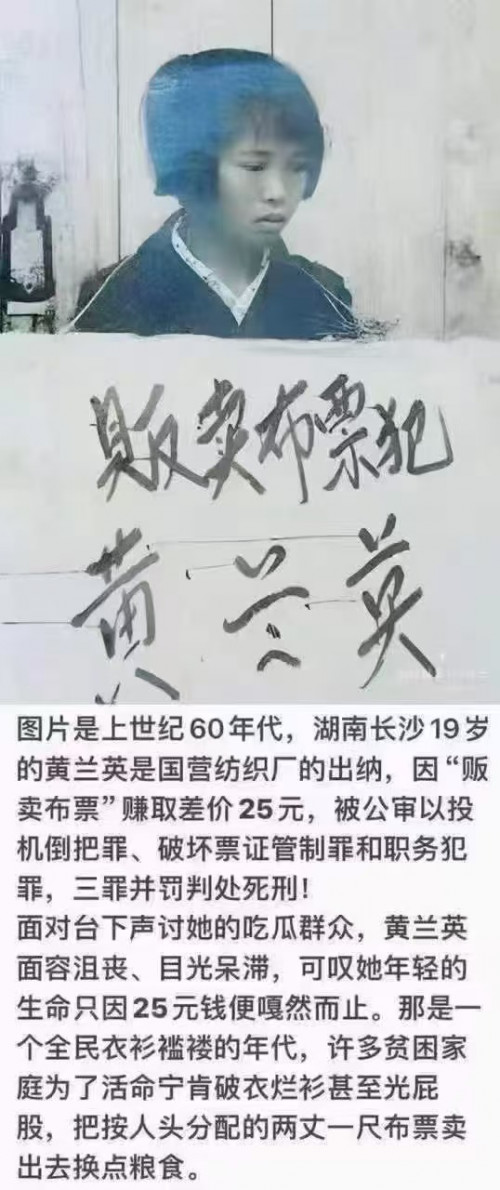 贩卖布票犯
黄兰英
图片是上世纪60年代，湖南长沙19岁
的黄兰英是国营纺织厂的出纳，因“贩
卖布票”赚取差价25元，被公审以投
机倒把罪、破坏票证管制罪和职务犯
罪，三罪并罚判处死刑！
面对台下声讨她的吃瓜群众，黄兰英
面容沮丧、目光呆滞，可叹她年轻的
生命只因25元钱便嘎然而止。那是一
个全民衣衫褴褛的年代，许多贫困家
庭为了活命宁肯破衣烂衫甚至光屁
股，把按人头分配的两丈一尺布票卖
出去换点粮食。